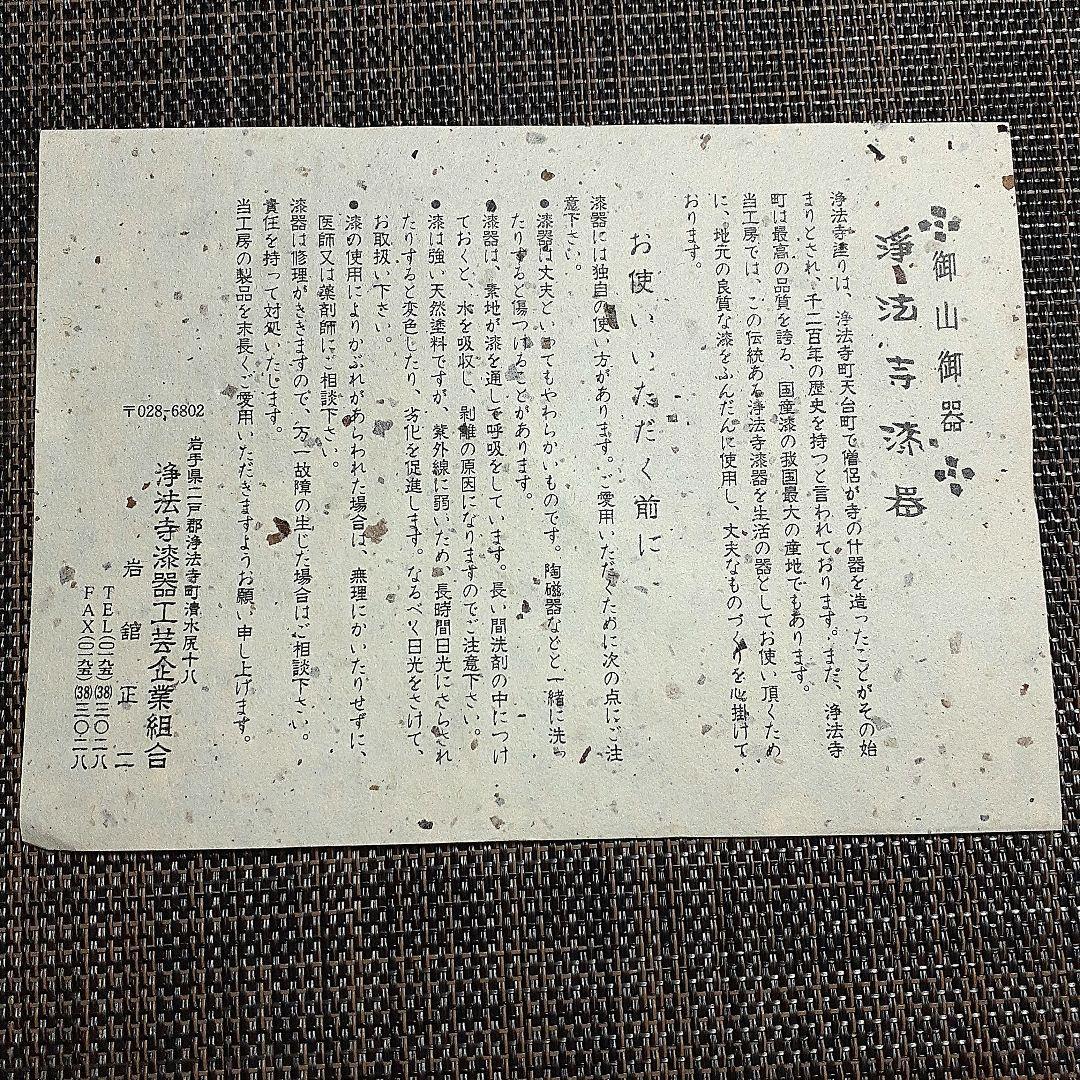 御山御器
浄法寺漆器
浄法寺塗りは、浄法寺町天台町で僧侶が寺の什器を造ったことがその始
まりとされ、千二百年の歴史を持つと言われております。まだ、浄法寺
町は最高の品質を誇る、国産漆の我国最大の産地でもあります。
当工房では、この伝統ある浄法寺漆器を生活の器としてお使い頂くため
に、地元の良質な漆をふんだんに使用し、丈夫なものづくりを心掛けて
おります。
お使いいただく前に
漆器には独自の使い方があります。ご愛用いただくために次の点にご注
意下さい。
● 漆器は丈夫といってもやわらかいものです。陶磁器などと一緒に洗っ
たりすると傷つけることがあります。
● 漆器は、素地が漆を通して呼吸をしています。長い間洗剤の中につけ
ておくと、水を吸収し、剝離の原因になりますのでご注意下さい。
● 漆は強い天然塗料ですが、紫外線に弱いため、長時間日光にさらされ
たりすると変色したり、劣化を促進します。なるべく日光をさけて、
お取扱い下さい。
● 漆の使用によりかぶれがあらわれた場合は、無理にかいたりせずに、
医師又は薬剤師にご相談下さい。
漆器は修理がききますので、万一故障の生じた場合はご相談下さい。
責任を持って対処いたします。
当工房の製品を末長くご愛用いただきますようお願い申し上げます。
〒028-6802
岩手県二戸郡浄法寺町清水尻十八
浄法寺漆器工芸企業組合
岩舘正二
TEL(〇一九五)(38)三〇二八
FAX(〇一九五)(38)三〇二八